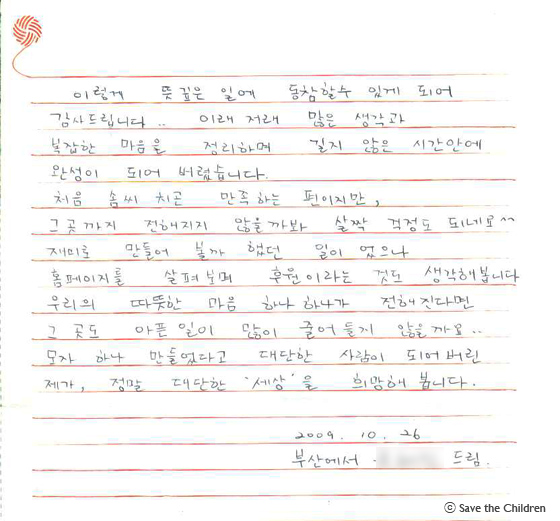 이렇게 뜻깊은 일에 동참할수 있게 되어
감사드립니다.. 이래저래 많은 생각과
복잡한 마음을 정리하며 길지 않은 시간안에
완성이 되어 버렸습니다.
처음 솜씨 치곤 만족하는 편이지만,
그곳까지 전해지지 않을까봐 살짝 걱정도 되네요^^
재미로 만들어 볼까 했던 일이 었으나
홈페이지를 살펴보며 후원이라는 것도 생각해봅니다
우리의 따뜻한 마음 하나 하나가 전해진다면
그 곳도 아픈일이 많이 줄어들지 않을까요..
모자 하나 만들었다고 대단한 사람이 되어버린
제가, 정말 대단한 '세상'을 희망해 봅니다.
2009. 10. 26
부산에서 드림.
ⓒ Save the Children